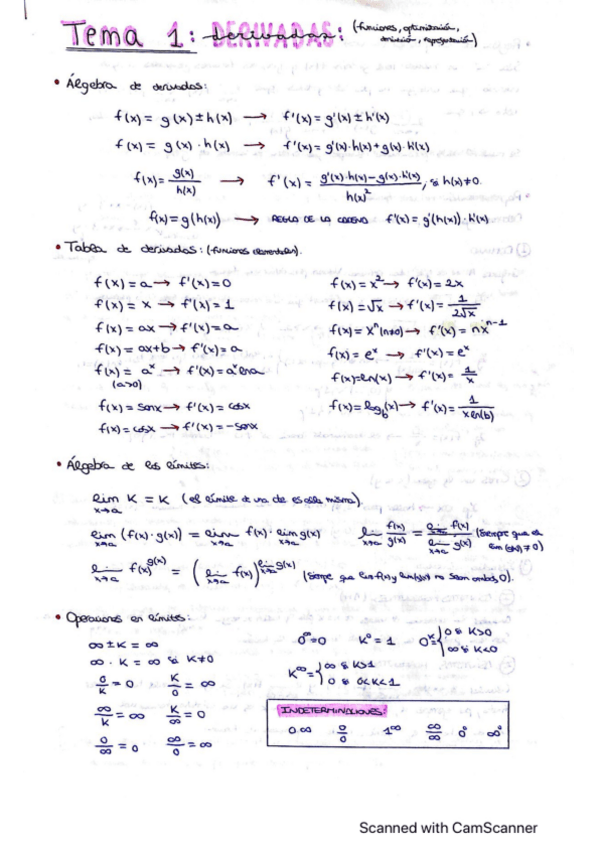 Tema 1: DERIVADAS: (funciones, optimización,
derivación, representación)
• Álgebra de derivadas:
f(x) = g(x) ± h(x) → f'(x) = g'(x) ± h'(x)
f(x) = g(x) · h(x) → f'(x) = g'(x)·h(x) + g(x)·h'(x)
f(x) = g(x)/h(x) → f'(x) = g'(x)·h(x) − g(x)·h'(x)/h(x)², si h(x)≠0.
f(x) = g(h(x)) → REGLA DE LA CADENA f'(x) = g'(h(x))·h'(x)
• Tabla de derivadas: (funciones elementales).
f(x) = a → f'(x) = 0
f(x) = x → f'(x) = 1
f(x) = ax → f'(x) = a
f(x) = ax+b → f'(x) = a
f(x) = aˣ → f'(x) = aˣ lna
(a>0)
f(x) = senx → f'(x) = cosx
f(x) = cosx → f'(x) = −senx
f(x) = x² → f'(x) = 2x
f(x) = √x → f'(x) = 1/2√x
f(x) = xⁿ (n≠0) → f'(x) = nxⁿ⁻¹
f(x) = eˣ → f'(x) = eˣ
f(x)=ln(x) → f'(x) = 1/x
f(x) = log_b(x) → f'(x) = 1/x ln(b)
• Álgebra de los límites:
lim x→a K = K (el límite de una cte es ella misma).
lim x→a (f(x) · g(x)) = lim x→a f(x) · lim x→a g(x)
lim x→a f(x)/g(x) = lim x→a f(x)/lim x→a g(x) (siempre que el
lim g(x) ≠ 0)
lim x→a f(x)^g(x) = (lim x→a f(x))^lim x→a g(x) (siempre que lim f(x) y lim g(x) no sean ambos 0).
• Operaciones en límites:
∞ ± K = ∞
∞ · K = ∞ si K≠0
0/K = 0 K/0 = ∞
∞/K = ∞ K/∞ = 0
0/∞ = 0 ∞/0 = ∞
0^∞ = 0 K⁰ = 1 0^K = { 0 si K>0
∞ si K<0
K^∞ = { ∞ si K>1
0 si 0<K<1
INDETERMINACIONES:
0·∞ 0/0 1^∞ ∞/∞ 0⁰ ∞⁰
Scanned with CamScanner